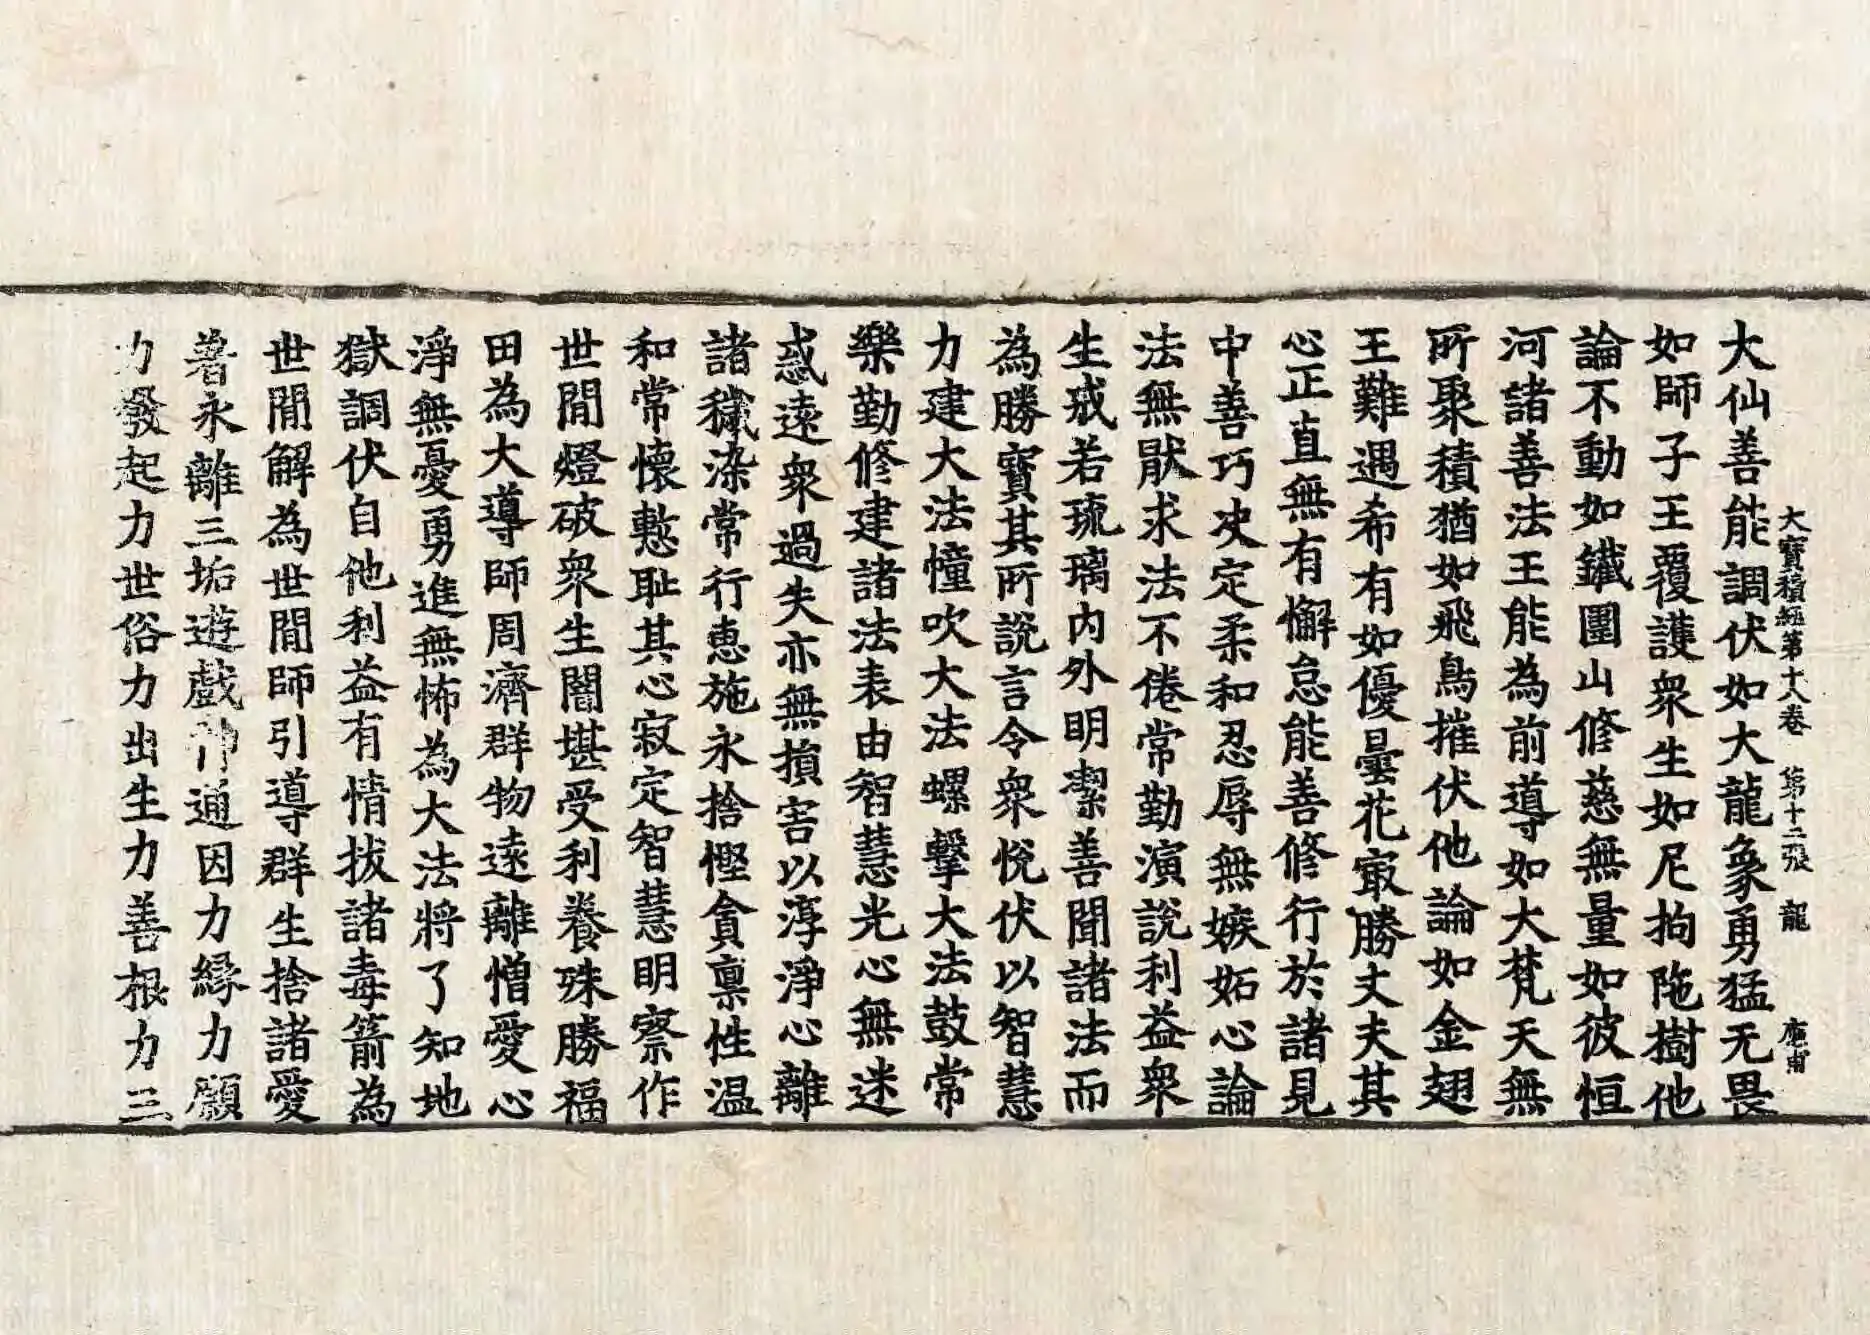 大寶積經第十八卷 第十二張 龍
大仙善能調伏如大龍象勇猛无畏
如師子王覆護衆生如尼拘陁樹他
論不動如鐵圍山修慈無量如彼恒
河諸善法王能為前導如大梵天無
所聚積猶如飛鳥摧伏他論如金翅
王難遇希有如優曇花㝡勝丈夫其
心正直無有懈怠能善修行於諸見
中善巧决定柔和忍辱無嫉妬心論
法無猒求法不倦常勤演說利益衆
生戒若琉璃內外明潔善聞諸法而
為勝寶其所說言令衆悅伏以智慧
力建大法幢吹大法螺擊大法鼓常
樂勤修建諸法表由智慧光心無迷
惑遠衆過失亦無損害以淳淨心離
諸穢染常行恵施永捨慳貪禀性温
和常懷慙耻其心寂定智慧明察作
世閒燈破衆生闇堪受利養殊勝福
田為大導師周濟群物遠離憎愛心
淨無憂勇進無怖為大法將了知地
獄調伏自他利益有情拔諸毒箭為
世閒解為世閒師引導群生捨諸愛
著永離三垢遊戲神通因力緣力願
力發起力世俗力出生力善根力三